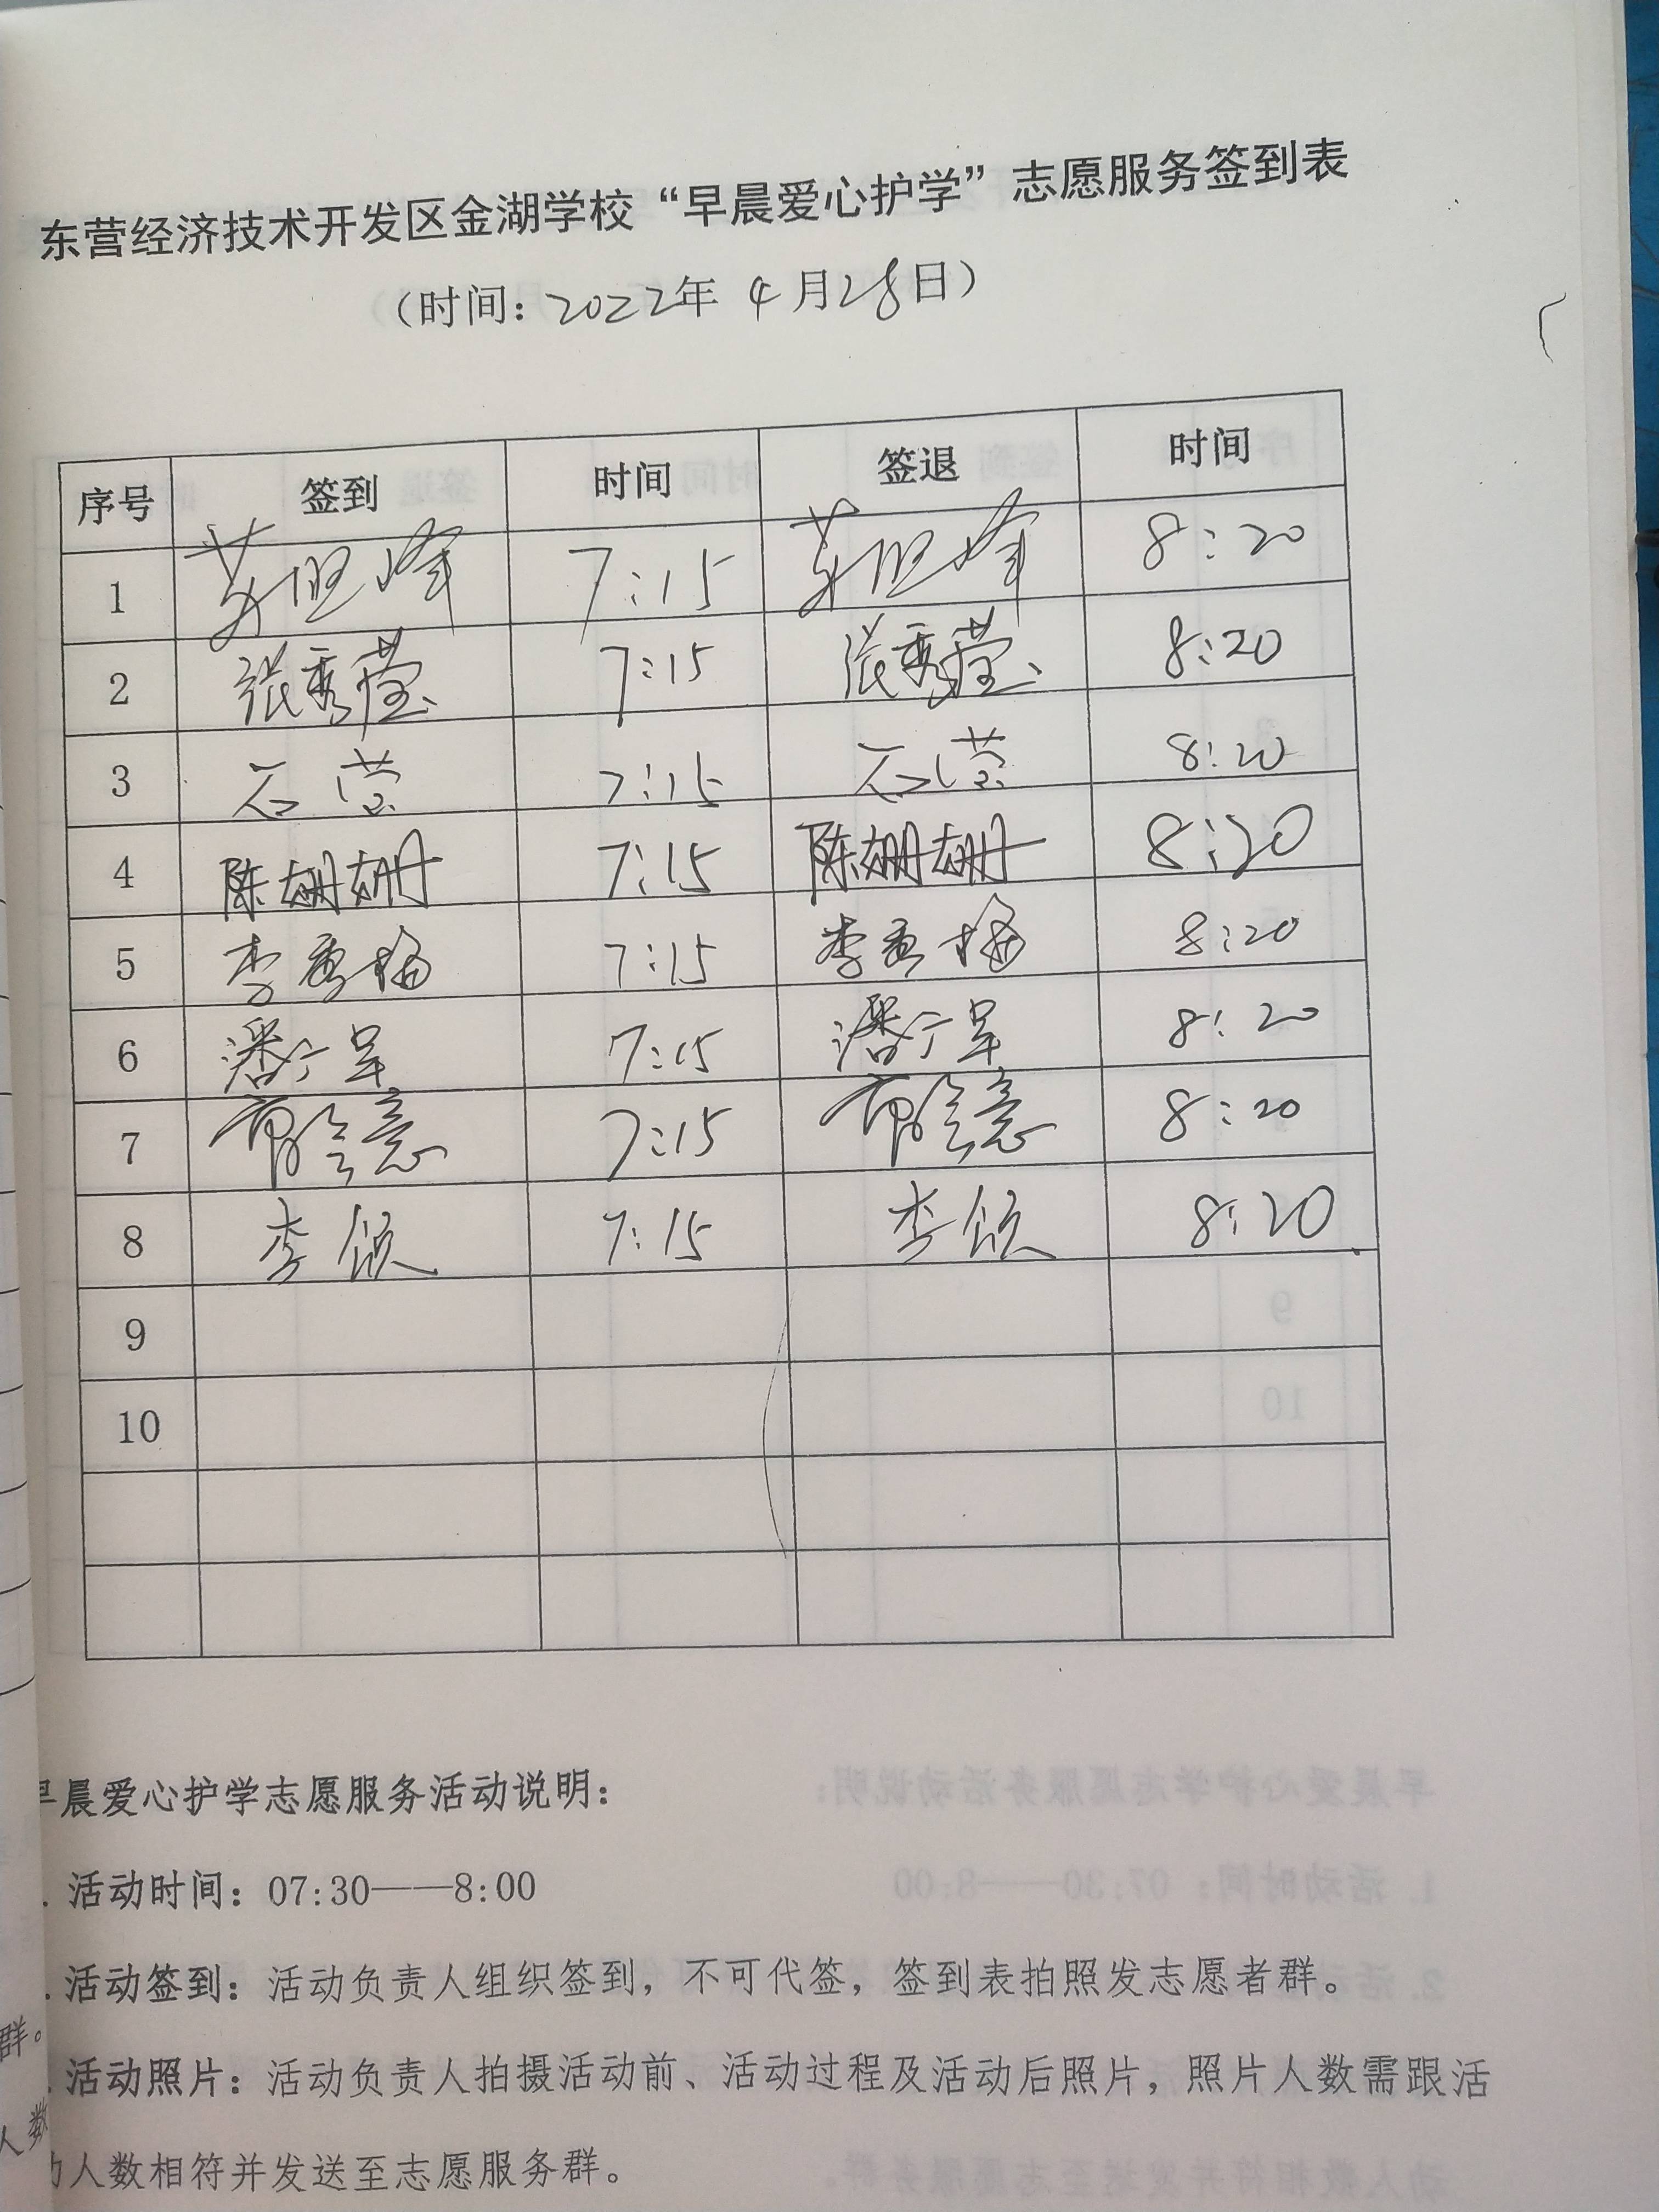 东营经济技术开发区金湖学校“早晨爱心护学”志愿服务签到表
（时间：2022年 4月28日）
序号 签到 时间 签退 时间
1 7:15 8:20
2 张秀莹 7:15 张秀莹 8:20
3 石莹 7:15 石莹 8:20
4 陈姗姗 7:15 陈姗姗 8:20
5 李秀梅 7:15 李秀梅 8:20
6 潘广军 7:15 潘广军 8:20
7 7:15 8:20
8 李颀 7:15 李颀 8:20
9
10
早晨爱心护学志愿服务活动说明：
. 活动时间：07:30——8:00
. 活动签到：活动负责人组织签到，不可代签，签到表拍照发志愿者群。
. 活动照片：活动负责人拍摄活动前、活动过程及活动后照片，照片人数需跟活
动人数相符并发送至志愿服务群。
群。
人数